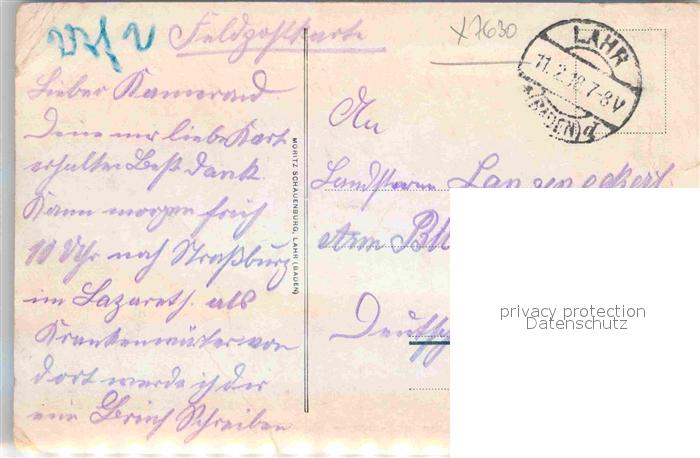 Feldpostkarte
X7630
LAHR
11.2.18 7-8V
(BADEN) d
Lieber Kamerad
Deine mir liebe Kart
erhalten Best dank
Kann morgen früh
10 Uhr nach Straßburg
im Lazareth als
Krankenwärter von
dort werde ich dir
ein Brief Schreiben
MORITZ SCHAUENBURG, LAHR (BADEN)
An
Landsturm
Arm
Deutsch
privacy protection
Datenschutz